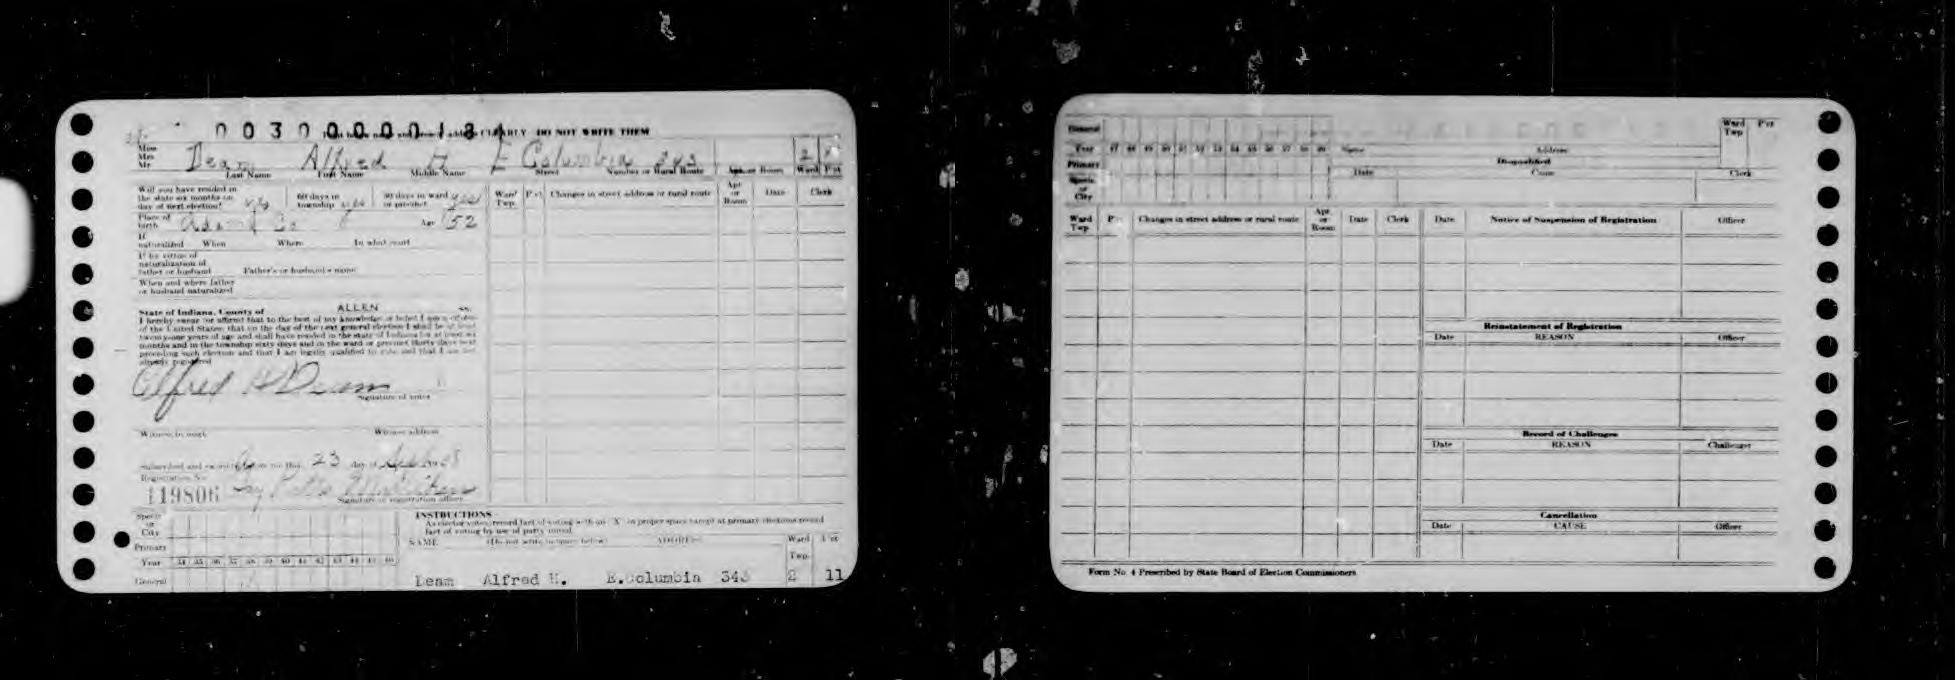 003000000184
CLEARLY DO NOT WRITE THEM
Miss
Mrs
Mr
Deam Alfred H E Columbia 343 2
Last Name First Name Middle Name Street Number or Rural Route Apt. or Room Ward Pct
Will you have resided in the state six months on day of next election? yes 60 days in township yes 30 days in ward or precinct yes
Place of birth Adams Co Age 52
If naturalized When Where In what court
If by virtue of naturalization of father or husband Father's or husband's name
When and where father or husband naturalized
State of Indiana, County of ALLEN ss.
I hereby swear (or affirm) that to the best of my knowledge or belief I am a citizen
of the United States; that on the day of the next general election I shall be at least
twenty-one years of age and shall have resided in the state of Indiana for at least six
months and in the township sixty days and in the ward or precinct thirty days next
preceding such election and that I am legally qualified to vote and that I am not
already registered
Alfred H Deam
Signature of voter
Witness to mark Witness address
Subscribed and sworn to before me this 23 day of
Registration No.
119806
Signature of registration officer
Ward Twp. Pct Changes in street address or rural route Apt or Room Date Clerk
Special or City
Primary
Year 34 35 36 37 38 39 40 41 42 43 44 45 46
General
INSTRUCTIONS
As elector votes, record fact of voting with an "X" in proper space except at primary elections record
fact of voting by use of party initial
NAME (Do not write in space below) ADDRESS Ward Twp. Pct
Deam Alfred H. E.Columbia 343 2 11
General
Year 47 48 49 50 51 52 53 54 55 56 57 58 59 Name Address Ward Twp Pct
Primary Disqualified
Special or City Date Cause Clerk
Ward Twp Pct Changes in street address or rural route Apt or Room Date Clerk Date Notice of Suspension of Registration Officer
Reinstatement of Registration
Date REASON Officer
Record of Challenges
Date REASON Challenger
Cancellation
Date CAUSE Officer
Form No. 4 Prescribed by State Board of Election Commissioners